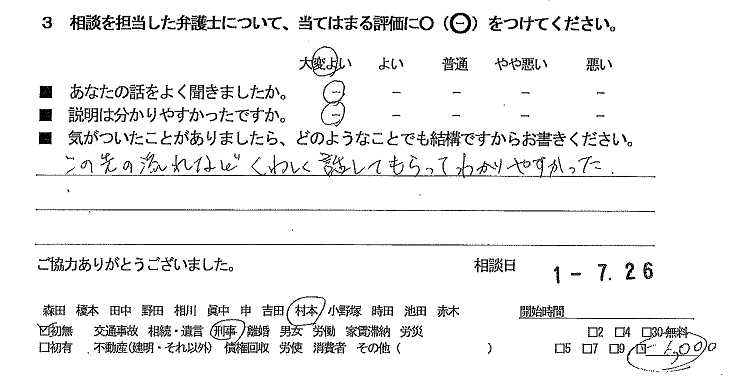 3 相談を担当した弁護士について、当てはまる評価に〇（㊀）をつけてください。
大変よい よい 普通 やや悪い 悪い
■ あなたの話をよく聞きましたか。 － － － － －
■ 説明は分かりやすかったですか。 － － － － －
■ 気がついたことがありましたら、どのようなことでも結構ですからお書きください。
この先の流れなど くわしく話してもらってわかりやすかった.
ご協力ありがとうございました。 相談日 1-7.26
森田 榎本 田中 野田 相川 眞中 申 吉田 村本 小野塚 時田 池田 赤木 開始時間
☑初無 交通事故 相続・遺言 刑事 離婚 男女 労働 家賃滞納 労災 □2 □4 □30-無料
□初有 不動産(建明・それ以外) 債権回収 労使 消費者 その他 ( ) □5 □7 □9 □